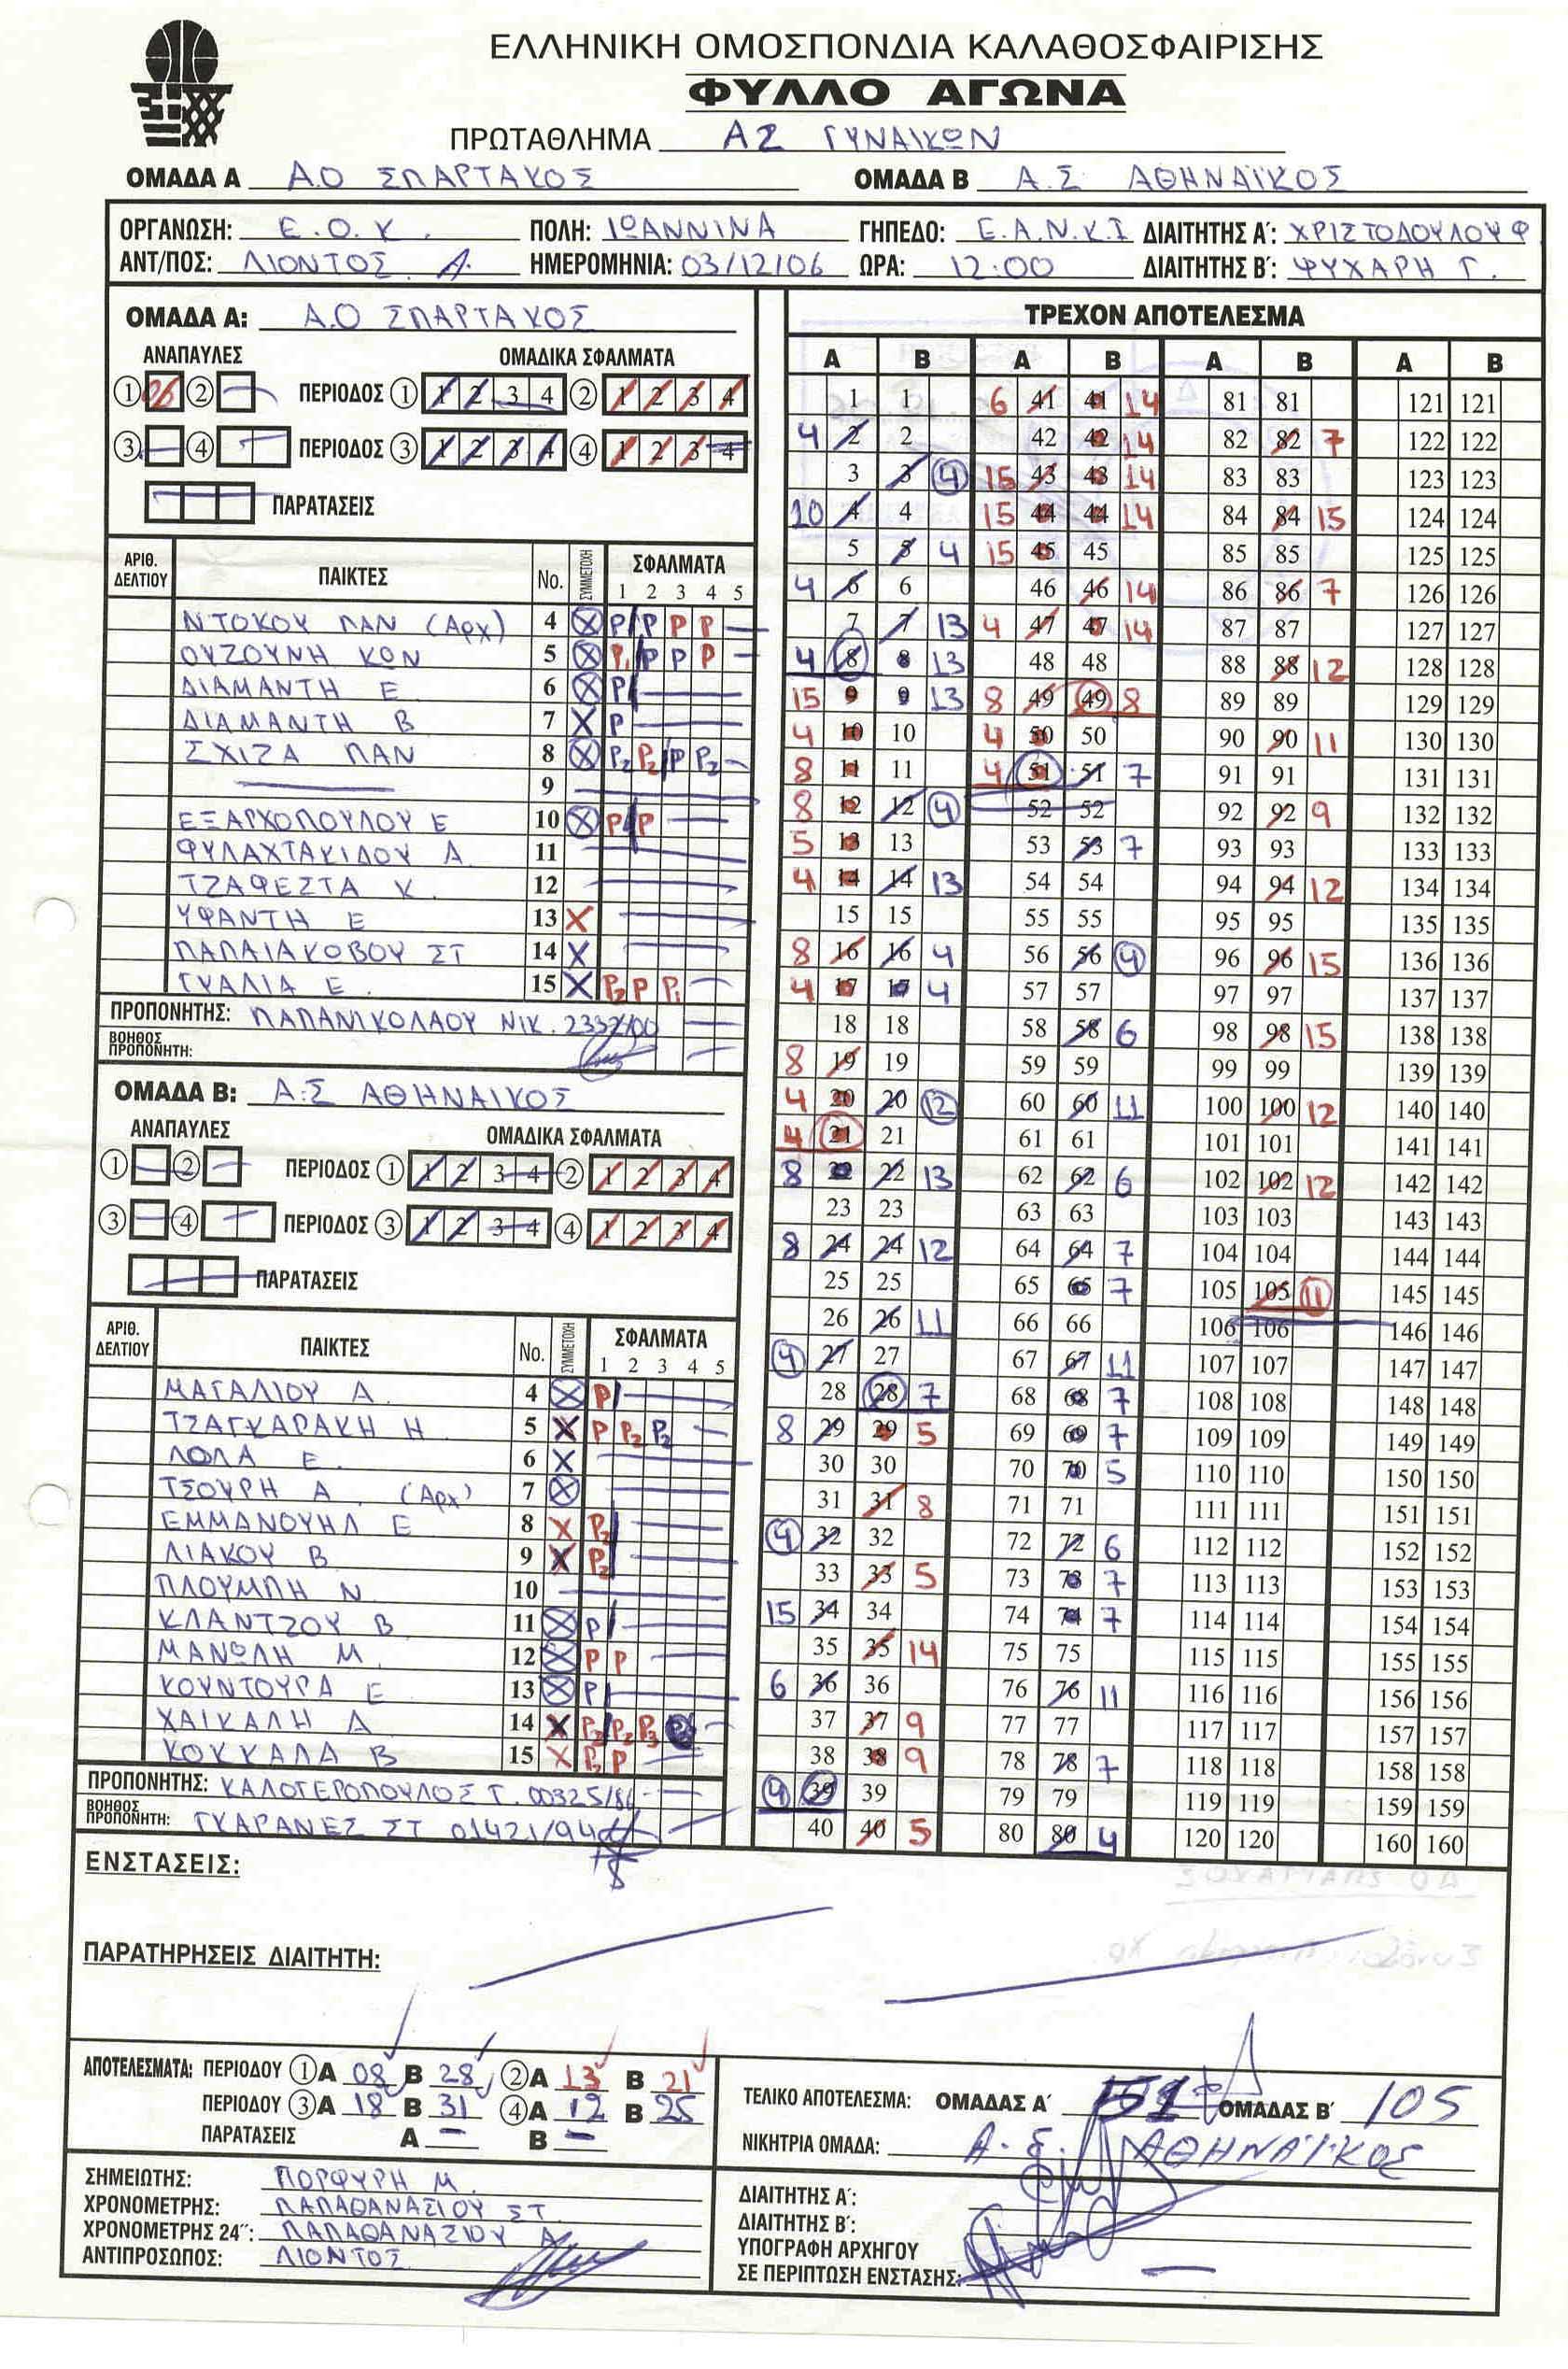 ΕΛΛΗΝΙΚΗ ΟΜΟΣΠΟΝΔΙΑ ΚΑΛΑΘΟΣΦΑΙΡΙΣΗΣ
ΦΥΛΛΟ ΑΓΩΝΑ
ΠΡΩΤΑΘΛΗΜΑ Α2 ΓΥΝΑΙΚΩΝ
ΟΜΑΔΑ Α Α.Ο ΣΠΑΡΤΑΚΟΣ ΟΜΑΔΑ Β Α.Σ ΑΘΗΝΑΪΚΟΣ
ΟΡΓΑΝΩΣΗ: Ε.Ο.Κ. ΠΟΛΗ: ΙΩΑΝΝΙΝΑ ΓΗΠΕΔΟ: Ε.Α.Ν.Κ.Ι ΔΙΑΙΤΗΤΗΣ Α΄: ΧΡΙΣΤΟΔΟΥΛΟΥ Φ
ΑΝΤ/ΠΟΣ: ΛΙΟΝΤΟΣ Α. ΗΜΕΡΟΜΗΝΙΑ: 03/12/06 ΩΡΑ: 12:00 ΔΙΑΙΤΗΤΗΣ Β΄: ΨΥΧΑΡΗ Γ.
ΟΜΑΔΑ Α: Α.Ο ΣΠΑΡΤΑΚΟΣ
ΑΝΑΠΑΥΛΕΣ ΟΜΑΔΙΚΑ ΣΦΑΛΜΑΤΑ
① 06 ② ΠΕΡΙΟΔΟΣ ① 1 2 3 4 ② 1 2 3 4
③ ④ ΠΕΡΙΟΔΟΣ ③ 1 2 3 4 ④ 1 2 3 4
ΠΑΡΑΤΑΣΕΙΣ
ΑΡΙΘ. ΔΕΛΤΙΟΥ ΠΑΙΚΤΕΣ No. ΣΥΜΜΕΤΟΧΗ ΣΦΑΛΜΑΤΑ
1 2 3 4 5
ΝΤΟΚΟΥ ΠΑΝ (Αρχ) 4 X P P P P
ΟΥΖΟΥΝΗ ΚΩΝ 5 X P1 P P P
ΔΙΑΜΑΝΤΗ Ε 6 X P
ΔΙΑΜΑΝΤΗ Β 7 X P
ΣΧΙΖΑ ΠΑΝ 8 X P2 P2 P P2
9
ΕΞΑΡΧΟΠΟΥΛΟΥ Ε 10 X P P
ΦΥΛΑΧΤΑΚΙΔΟΥ Α 11
ΤΖΑΦΕΣΤΑ Κ. 12
ΥΦΑΝΤΗ Ε 13 X
ΠΑΠΑΙΑΚΟΒΟΥ ΣΤ 14 X
ΓΚΑΛΙΑ Ε. 15 X P2 P P1
ΠΡΟΠΟΝΗΤΗΣ: ΠΑΠΑΝΙΚΟΛΑΟΥ ΝΙΚ. 2332/00
ΒΟΗΘΟΣ ΠΡΟΠΟΝΗΤΗ:
ΟΜΑΔΑ Β: Α.Σ ΑΘΗΝΑΙΚΟΣ
ΑΝΑΠΑΥΛΕΣ ΟΜΑΔΙΚΑ ΣΦΑΛΜΑΤΑ
① ② ΠΕΡΙΟΔΟΣ ① 1 2 3 4 ② 1 2 3 4
③ ④ ΠΕΡΙΟΔΟΣ ③ 1 2 3 4 ④ 1 2 3 4
ΠΑΡΑΤΑΣΕΙΣ
ΑΡΙΘ. ΔΕΛΤΙΟΥ ΠΑΙΚΤΕΣ No. ΣΥΜΜΕΤΟΧΗ ΣΦΑΛΜΑΤΑ
1 2 3 4 5
ΜΑΓΑΛΙΟΥ Α. 4 X P
ΤΖΑΓΚΑΡΑΚΗ Η 5 X P P2 P2
ΛΩΛΑ Ε. 6 X
ΤΣΟΥΡΗ Α. (Αρχ) 7 X
ΕΜΜΑΝΟΥΗΛ Ε 8 X P2
ΛΙΑΚΟΥ Β 9 X P2
ΠΛΟΥΜΠΗ Ν 10
ΚΛΑΝΤΖΟΥ Β 11 X P
ΜΑΝΩΛΗ Μ. 12 X P P
ΚΟΥΝΤΟΥΡΑ Ε 13 X P
ΧΑΙΚΑΛΗ Δ 14 X P2 P2 P3
ΚΟΚΚΑΛΑ Β 15 X P2 P
ΠΡΟΠΟΝΗΤΗΣ: ΚΑΛΟΓΕΡΟΠΟΥΛΟΣ Γ. 00325/86
ΒΟΗΘΟΣ ΠΡΟΠΟΝΗΤΗ: ΓΚΑΡΑΝΕΣ ΣΤ 01421/94
ΤΡΕΧΟΝ ΑΠΟΤΕΛΕΣΜΑ
Α Β Α Β Α Β Α Β
1 1 6 41 41 14 81 81 121 121
4 2 2 42 42 14 82 82 7 122 122
3 3 4 15 43 43 14 83 83 123 123
10 4 4 15 44 44 14 84 84 15 124 124
5 5 4 15 45 45 85 85 125 125
4 6 6 46 46 14 86 86 7 126 126
7 7 13 4 47 47 14 87 87 127 127
4 8 8 13 48 48 88 88 12 128 128
15 9 9 13 8 49 49 8 89 89 129 129
4 10 10 4 50 50 90 90 11 130 130
8 11 11 4 51 51 7 91 91 131 131
8 12 12 4 52 52 92 92 9 132 132
5 13 13 53 53 7 93 93 133 133
4 14 14 13 54 54 94 94 12 134 134
15 15 55 55 95 95 135 135
8 16 16 4 56 56 4 96 96 15 136 136
4 17 17 4 57 57 97 97 137 137
18 18 58 58 6 98 98 15 138 138
8 19 19 59 59 99 99 139 139
4 20 20 12 60 60 11 100 100 12 140 140
4 21 21 61 61 101 101 141 141
8 22 22 13 62 62 6 102 102 12 142 142
23 23 63 63 103 103 143 143
8 24 24 12 64 64 7 104 104 144 144
25 25 65 65 7 105 105 11 145 145
26 26 11 66 66 106 106 146 146
4 27 27 67 67 11 107 107 147 147
28 28 7 68 68 7 108 108 148 148
8 29 29 5 69 69 7 109 109 149 149
30 30 70 70 5 110 110 150 150
31 31 8 71 71 111 111 151 151
4 32 32 72 72 6 112 112 152 152
33 33 5 73 73 7 113 113 153 153
15 34 34 74 74 7 114 114 154 154
35 35 14 75 75 115 115 155 155
6 36 36 76 76 11 116 116 156 156
37 37 9 77 77 117 117 157 157
38 38 9 78 78 7 118 118 158 158
4 39 39 79 79 119 119 159 159
40 40 5 80 80 4 120 120 160 160
ΕΝΣΤΑΣΕΙΣ:
ΠΑΡΑΤΗΡΗΣΕΙΣ ΔΙΑΙΤΗΤΗ:
ΑΠΟΤΕΛΕΣΜΑΤΑ: ΠΕΡΙΟΔΟΥ ① Α 08 Β 28 ② Α 13 Β 21
ΠΕΡΙΟΔΟΥ ③ Α 18 Β 31 ④ Α 12 Β 25
ΠΑΡΑΤΑΣΕΙΣ Α – Β –
ΤΕΛΙΚΟ ΑΠΟΤΕΛΕΣΜΑ: ΟΜΑΔΑΣ Α΄ 51 ΟΜΑΔΑΣ Β΄ 105
ΝΙΚΗΤΡΙΑ ΟΜΑΔΑ: Α.Σ. ΑΘΗΝΑΪΚΟΣ
ΣΗΜΕΙΩΤΗΣ: ΠΟΡΦΥΡΗ Μ.
ΧΡΟΝΟΜΕΤΡΗΣ: ΠΑΠΑΘΑΝΑΣΙΟΥ ΣΤ.
ΧΡΟΝΟΜΕΤΡΗΣ 24΄΄: ΠΑΠΑΘΑΝΑΣΙΟΥ Α.
ΑΝΤΙΠΡΟΣΩΠΟΣ: ΛΙΟΝΤΟΣ
ΔΙΑΙΤΗΤΗΣ Α΄:
ΔΙΑΙΤΗΤΗΣ Β΄:
ΥΠΟΓΡΑΦΗ ΑΡΧΗΓΟΥ
ΣΕ ΠΕΡΙΠΤΩΣΗ ΕΝΣΤΑΣΗΣ: